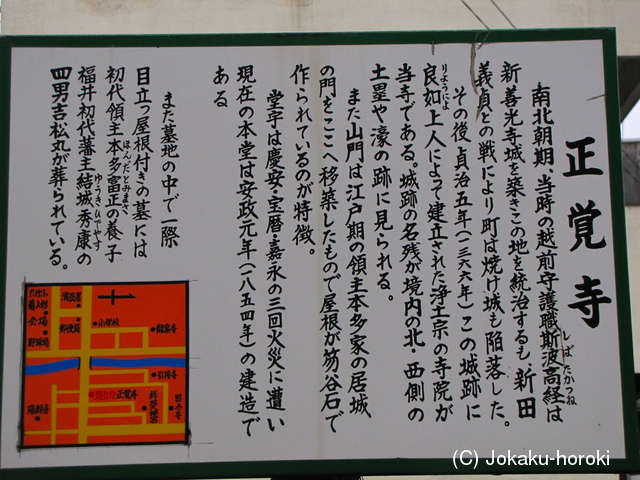 正覚寺
南北朝期、当時の越前守護職斯波高経は
しばたかつね
新善光寺城を築きこの地を統治するも新田
義貞との戦により町は焼け城も陥落した。
その後貞治五年(一三六六年)この城跡に
良如上人によって建立された浄土宗の寺院が
りょうにょ
当寺である。城跡の名残が境内の北・西側の
土塁や濠の跡に見られる。
また山門は江戸期の領主本多家の居城
の門をここへ移築したもので屋根が笏谷石で
作られているのが特徴。
堂宇は慶安・宝暦・嘉永の三回火災に遭い
現在の本堂は安政元年(一八五四年)の建造で
ある
また墓地の中で一際
目立つ屋根付きの墓には
初代領主本多富正の養子
ほんだとみまさ
福井初代藩主結城秀康の
ゆうきひでやす
四男吉松丸が葬られている。
たけふ
菊人形
会場
野球場
郵便局
小学校
龍泉寺
引接寺
現在地
正覚寺
総社
国分寺
陽願寺
(C) Jokaku-horoki